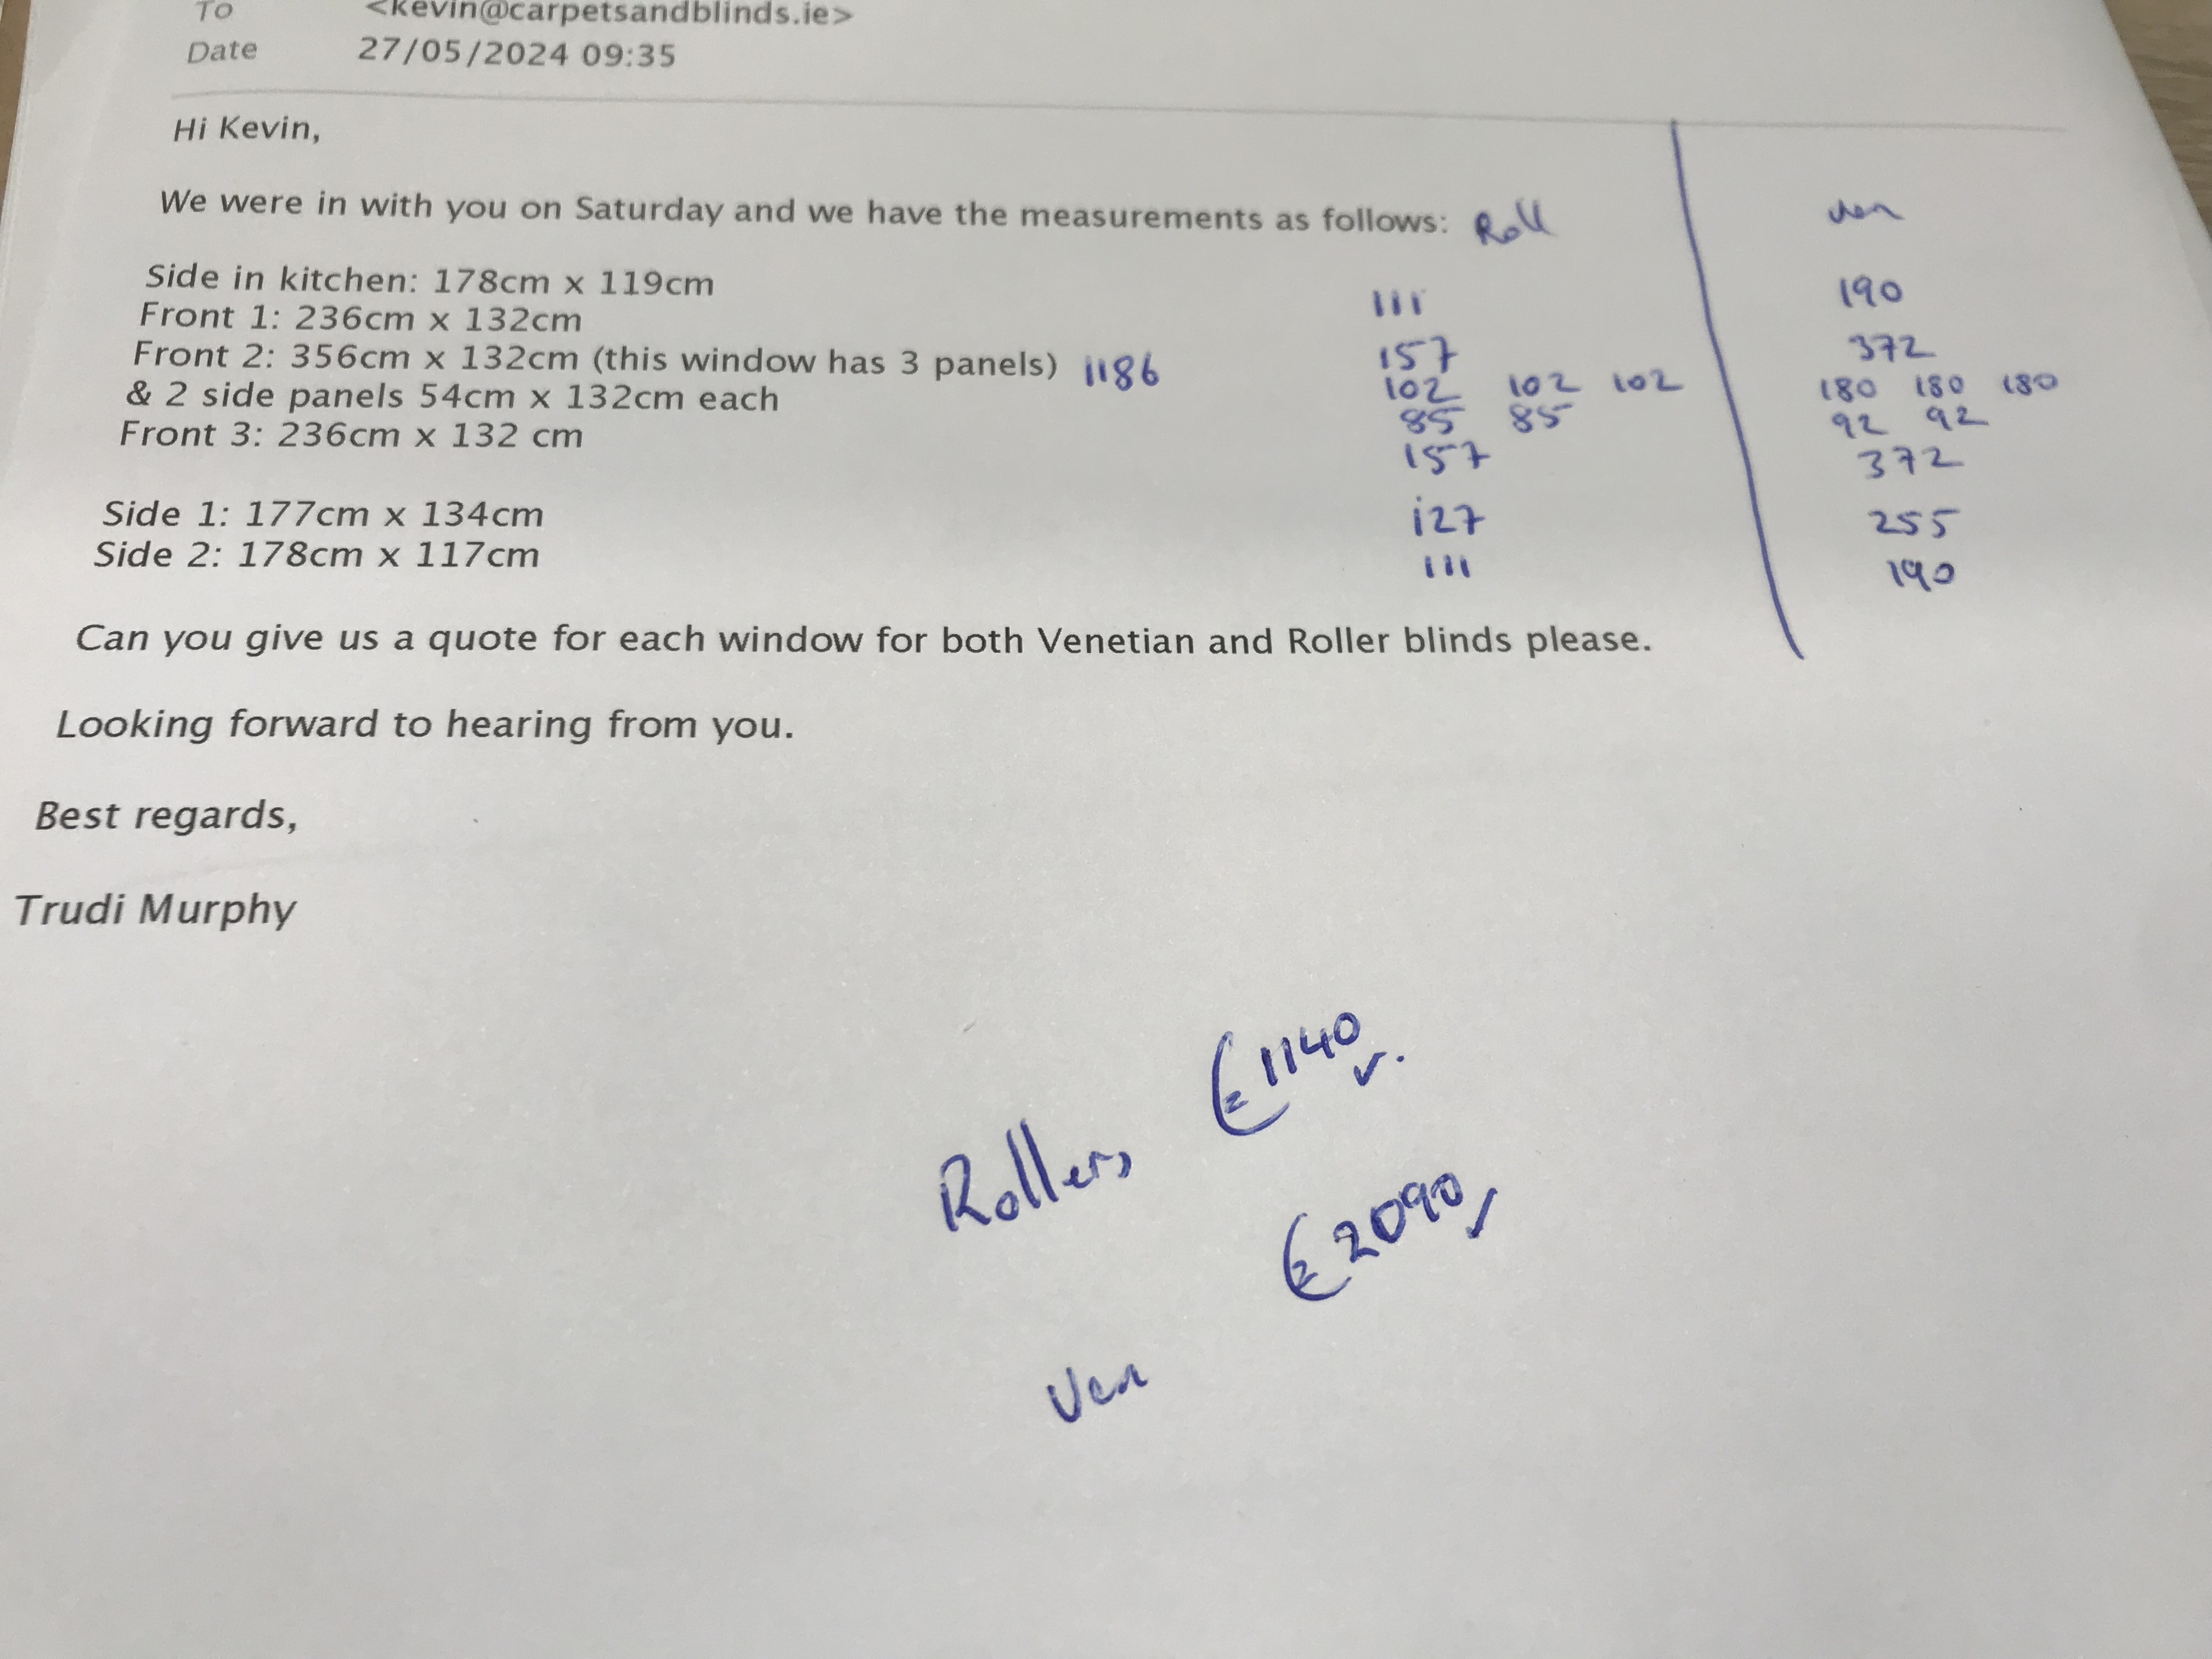 To <kevin@carpetsandblinds.ie>
Date 27/05/2024 09:35
Hi Kevin,
We were in with you on Saturday and we have the measurements as follows: Roll ven
Side in kitchen: 178cm x 119cm 111 190
Front 1: 236cm x 132cm 157 372
Front 2: 356cm x 132cm (this window has 3 panels) 1186 102 102 102 180 180 180
& 2 side panels 54cm x 132cm each 85 85 92 92
Front 3: 236cm x 132 cm 157 372
Side 1: 177cm x 134cm 127 255
Side 2: 178cm x 117cm 111 190
Can you give us a quote for each window for both Venetian and Roller blinds please.
Looking forward to hearing from you.
Best regards,
Trudi Murphy
Rollers €1140
Ven €2090